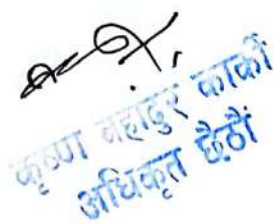 कृष्ण बहादुर कार्की
अधिकृत छैठौं